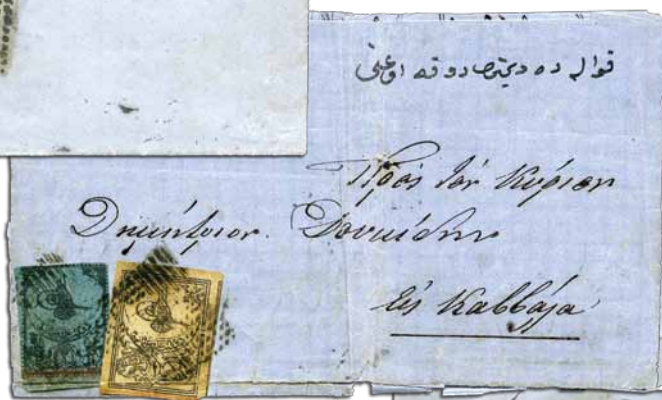 قواله ده ديمتر صادوقه اوغلى
Πρὸς τὸν Κύριον
Δημήτριον Δουκίδην
Εἰς Καββάλα